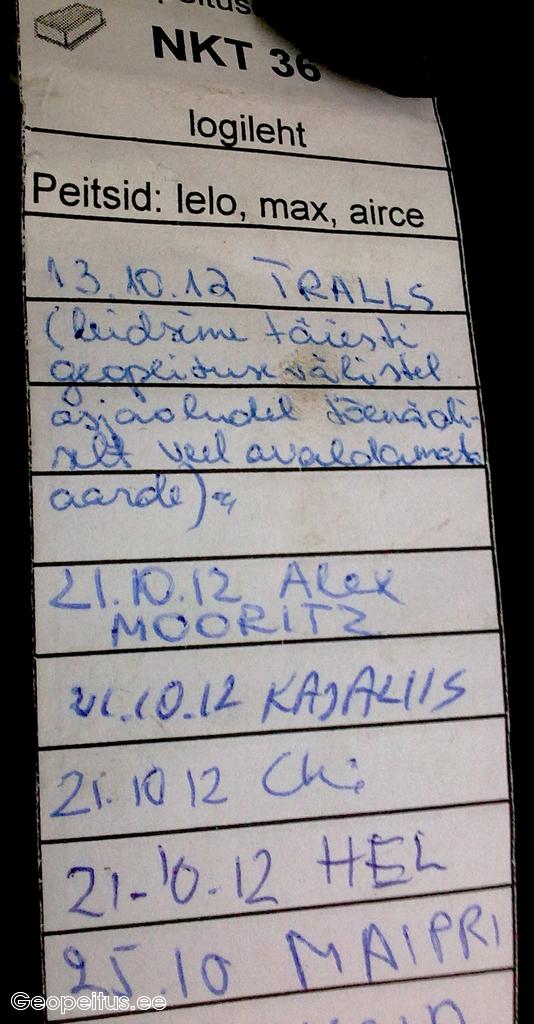 NKT 36
logileht
Peitsid: lelo, max, airce
13.10.12 TRALLS
(leidsime täiesti
geopeituse välistel
asjaoludel tõenäoli-
selt veel avaldamata
aarde)
21.10.12 Alex
MOORITZ
21.10.12 KAJALIIS
21.10 12 Chi
21-10.12 HEL
25.10 MAIPRI
Geopeitus.ee